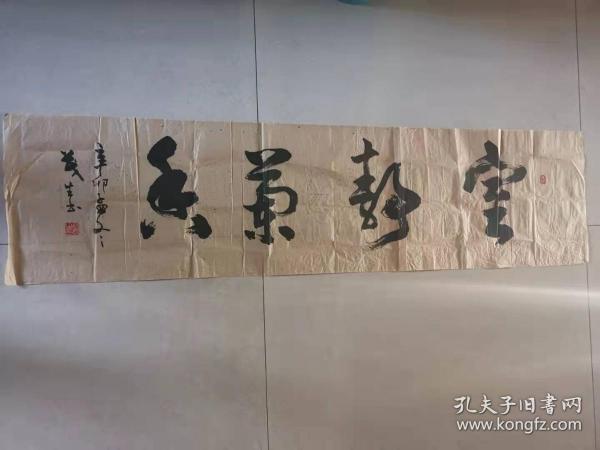 室静蘭香
辛卯
生书
孔夫子旧书网
www.kongfz.com